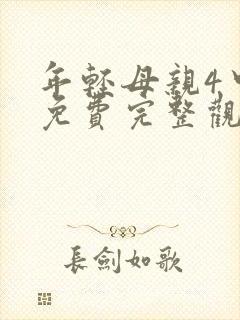 年輕母親4中
免費完整觀
長劍如歌